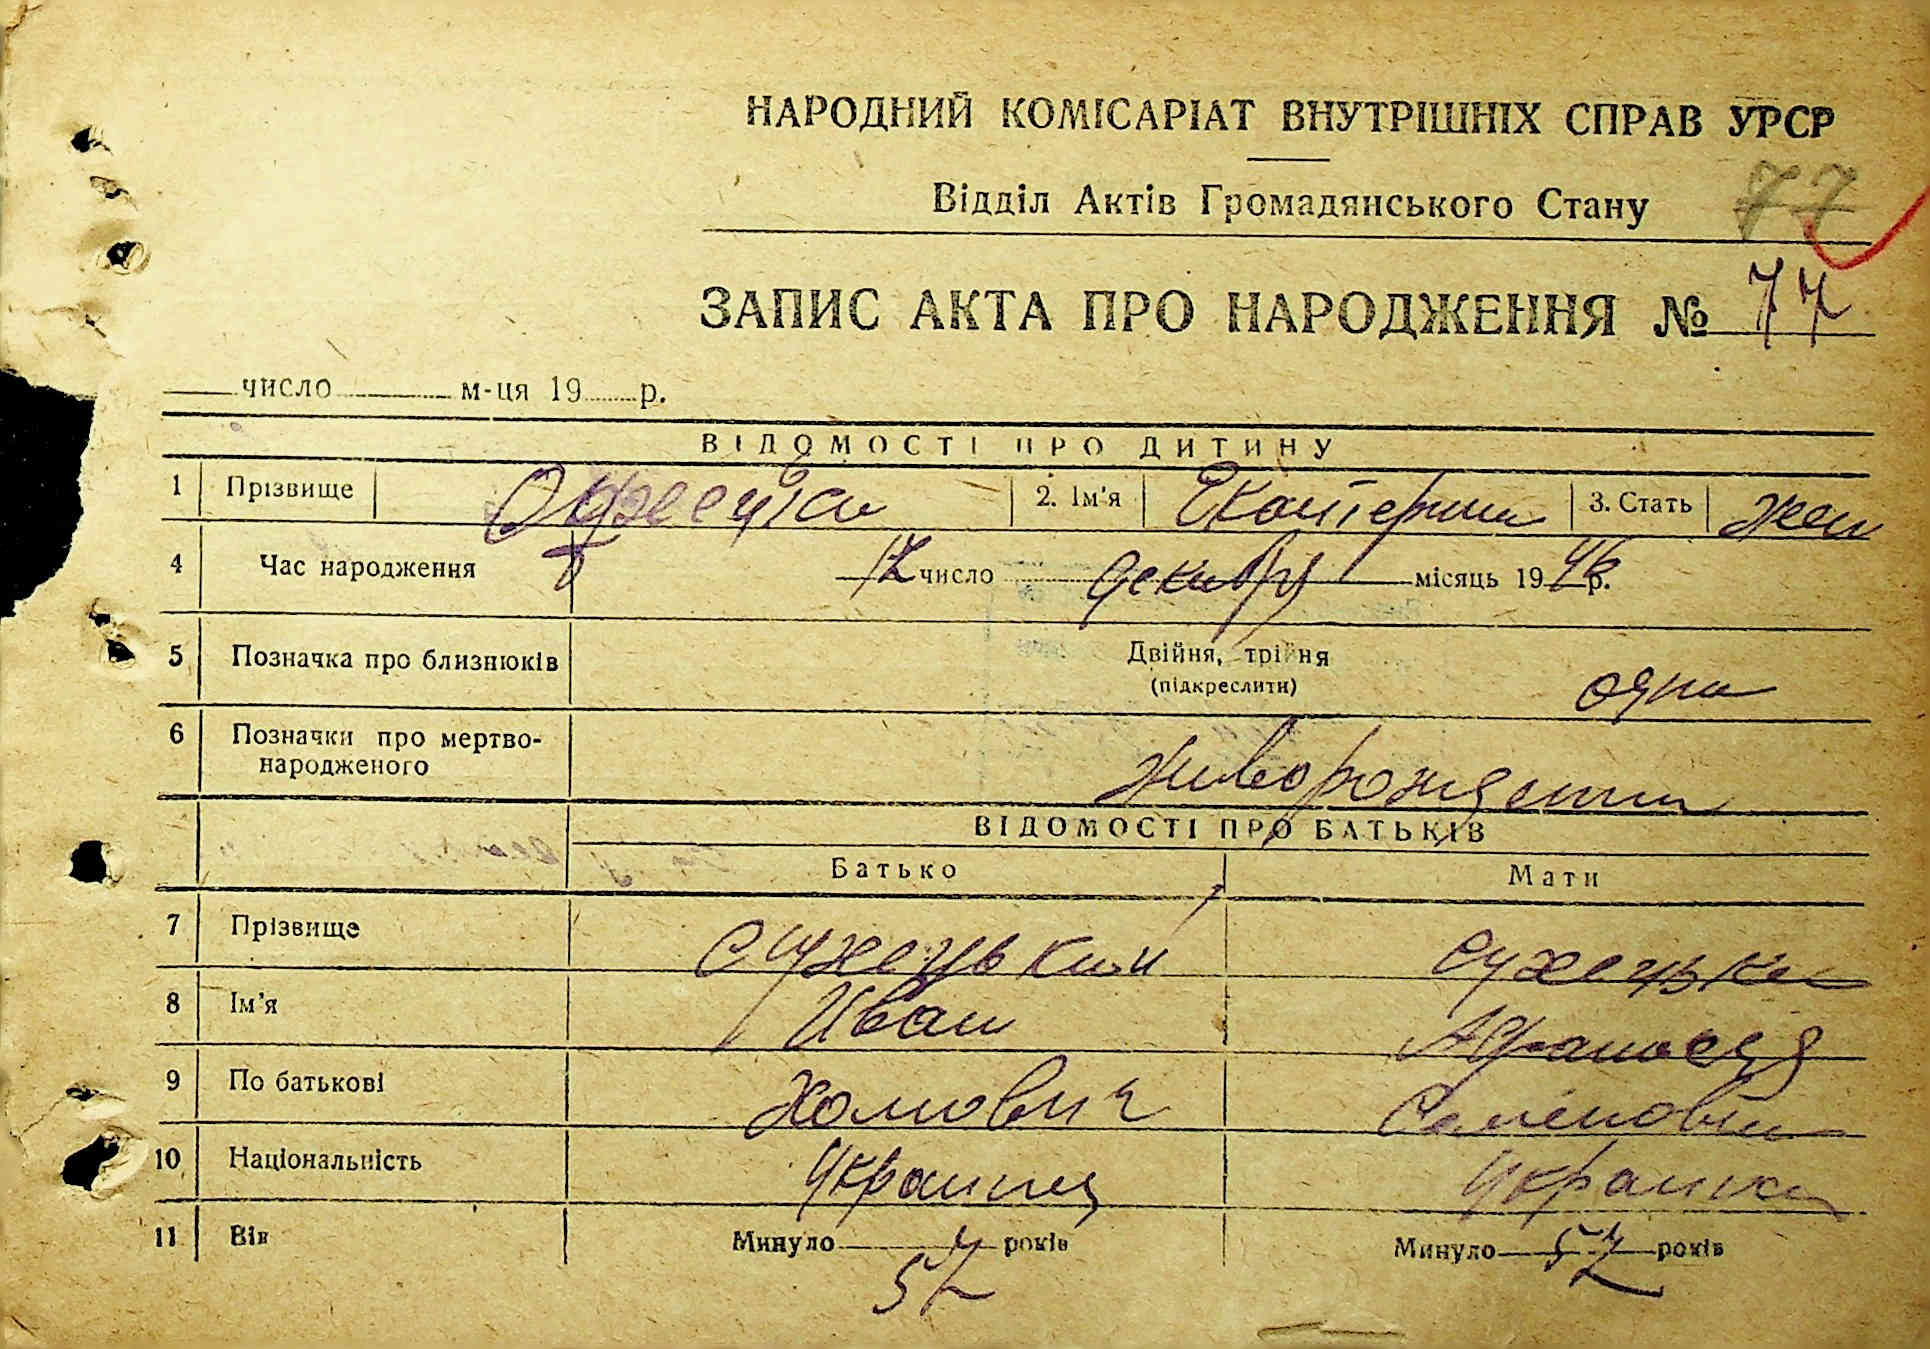 НАРОДНИЙ КОМІСАРІАТ ВНУТРІШНІХ СПРАВ УРСР
Відділ Актів Громадянського Стану 77
ЗАПИС АКТА ПРО НАРОДЖЕННЯ № 77
число м-ця 19 р.
ВІДОМОСТІ ПРО ДИТИНУ
1 Прізвище 2. Ім'я Екатерина 3. Стать жен
4 Час народження 17 число декабря місяць 1946 р.
5 Позначка про близнюків Двійня, трійня
(підкреслити) одна
6 Позначки про мертво-
народженого живорожденна
ВІДОМОСТІ ПРО БАТЬКІВ
Батько Мати
7 Прізвище Сухецький Сухецька
8 Ім'я Иван Афанасия
9 По батькові Хомович Семёновна
10 Національність Украинец Украинка
11 Вік Минуло 57 років Минуло 57 років